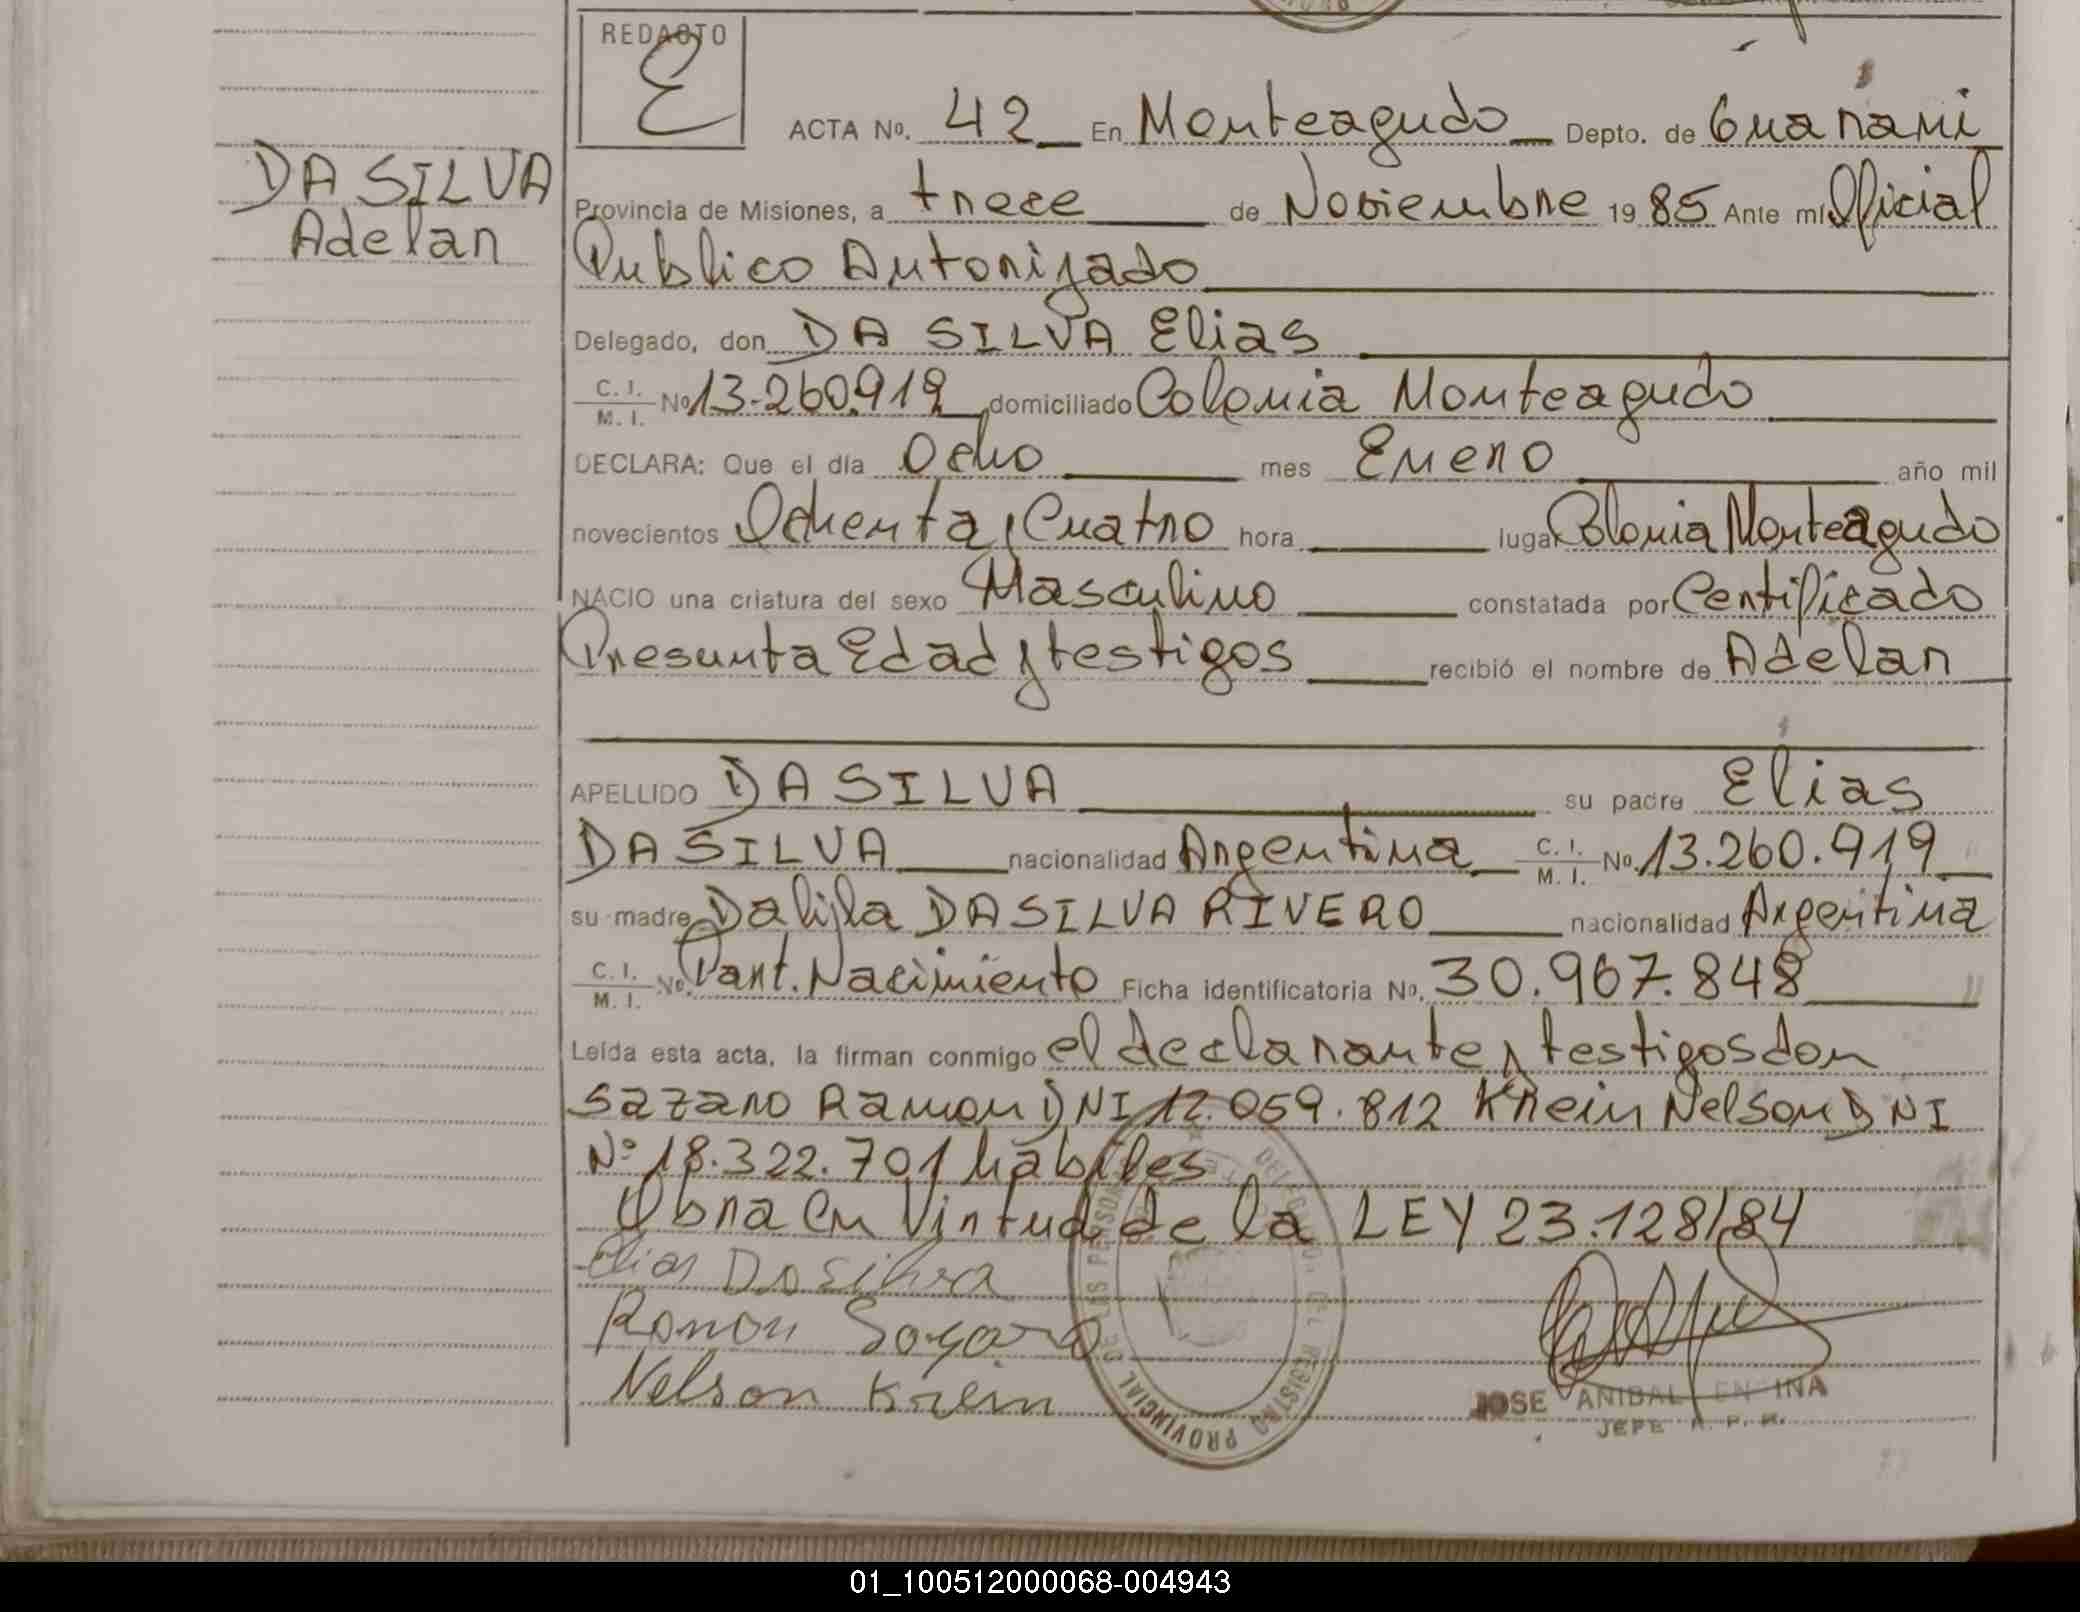 REDACTO
E
ACTA Nº. 42 En Monteagudo Depto. de Guarani
DA SILVA
Adelar
Provincia de Misiones, a trece de Noviembre 1985 Ante mi Oficial
Publico Autorizado
Delegado, don DA SILVA Elias
C. I. / M. I. Nº 13.260.919 domiciliado Colonia Monteagudo
DECLARA: Que el día Ocho mes Enero año mil
novecientos Ochenta y Cuatro hora lugar Colonia Monteagudo
NACIO una criatura del sexo Masculino constatada por Certificado
Presunta Edad y testigos recibió el nombre de Adelar
APELLIDO DA SILVA su padre Elias
DA SILVA nacionalidad Argentina C. I. / M. I. Nº. 13.260.919
su madre Dalila DA SILVA RIVERO nacionalidad Argentina
C. I. / M. I. Nº. Part. Nacimiento Ficha identificatoria Nº. 30.967.848
Leída esta acta, la firman conmigo el declarante y testigos don
Sazaro Ramon DNI 12.059.812 Krein Nelson DNI
Nº 18.322.701 habiles
Obra en Virtud de la LEY 23.128/84
Elias Da Silva
Ramon Sazaro
Nelson Krein
JOSE ANIBAL ENCINA
JEFE R. P. P.
01_100512000068-004943